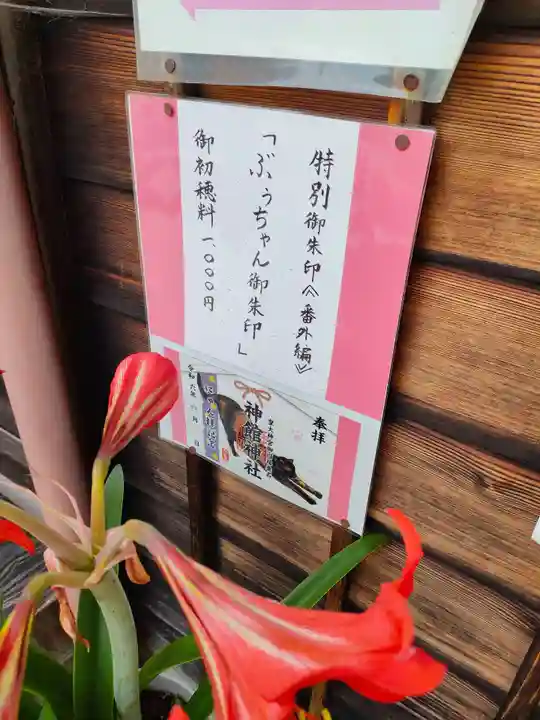 特別御朱印《番外編》
「ぶぅちゃん御朱印」
御初穂料 一、〇〇〇円
奉拝
神館神社
令和六年 月 日